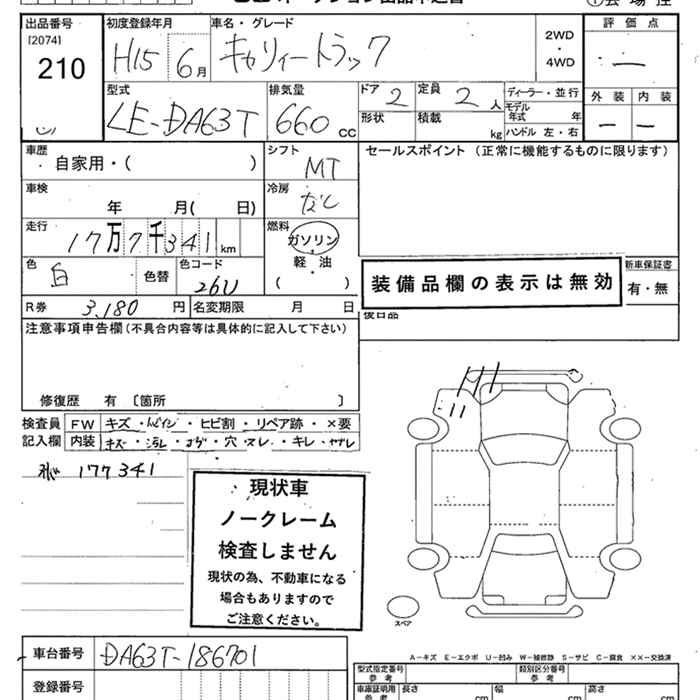 ①会場控
出品番号 [2074] 210
初度登録年月 H15 6月
車名・グレード キャリィートラック
2WD・4WD
評価点 —
外装 — 内装 —
型式 LE-DA63T
排気量 660 cc
ドア 2 定員 2人
形状 積載 kg
ディーラー・並行
モデル年式 年
ハンドル 左・右
車歴 自家用・( )
シフト MT
セールスポイント(正常に機能するものに限ります)
車検 年 月( 日)
冷房
走行 17万7千341km
燃料 ガソリン・軽油・( )
色 白 色替 色コード 26U
装備品欄の表示は無効
新車保証書 有・無
R券 3,180円 名変期限 月 日
後日品
注意事項申告欄(不具合内容等は具体的に記入して下さい)
修復歴 有〔箇所 〕
検査員記入欄
FW キズ・トビイシ・ヒビ割・リペア跡・×要
内装 キズ・ヨゴレ・コゲ・穴・スレ・キレ・ヤブレ
177341
現状車
ノークレーム
検査しません
現状の為、不動車になる
場合もありますので
ご注意ください。
スペア
A-キズ E-エクボ U-凹み W-補修跡 S-サビ C-腐食 ××-交換済
車台番号 DA63T-186701
登録番号
型式指定番号 参考
類別区分番号 参考
車庫証明用 参考 長さ cm 幅 cm 高さ cm